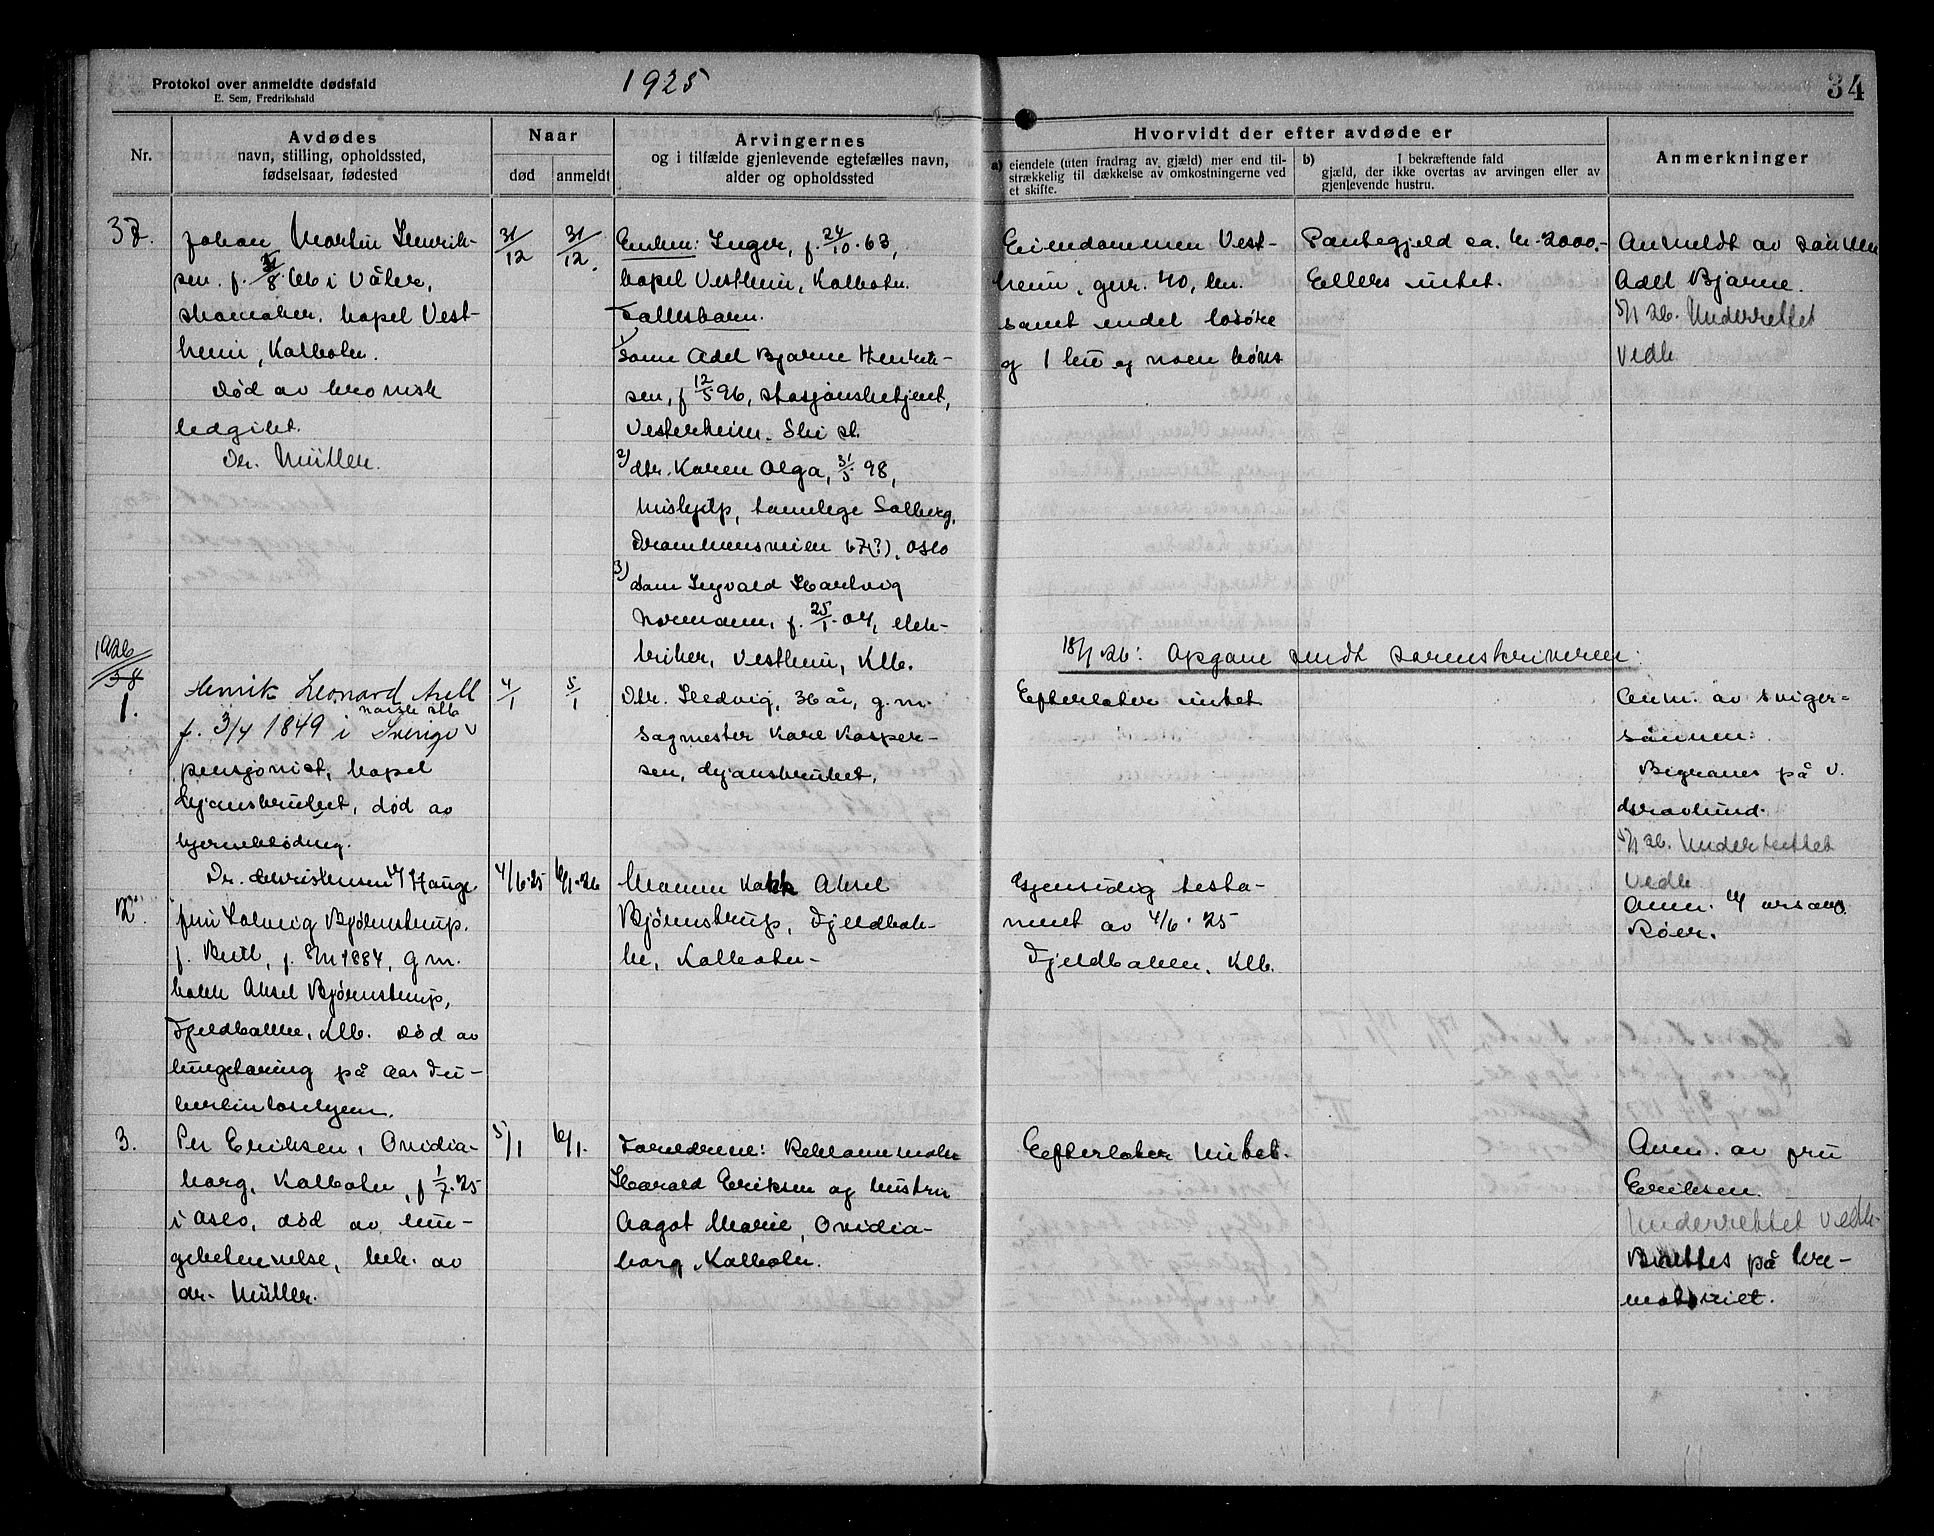 Protokol over anmeldte dødsfald
E. Sem, Fredrikshald
1925
34
Nr.
Avdødes
navn, stilling, opholdssted,
fødselsaar, fødested
Naar
død
anmeldt
Arvingernes
og i tilfælde gjenlevende egtefælles navn,
alder og opholdssted
Hvorvidt der efter avdøde er
a) eiendele (uten fradrag av gjæld) mer end til-
strækkelig til dækkelse av omkostningerne ved
et skifte.
b) I bekræftende fald
gjæld, der ikke overtas av arvingen eller av
gjenlevende hustru.
Anmerkninger
37.
Johan Martin Henrik-
sen. f. /8 66 i Våler,
skomaker, bopel Vest-
heim, Kolbotn.
Død av kronisk
Dr. Müller.
31/12
31/12.
Enken: Inger, f. 24/10.63,
bopel Vestheim, Kolbotn.
Fællesbarn.
1) sønn Adel Bjarne Henrik-
sen, f 12/5 96, stasjonsbetjent,
Vesterheim. Ski st.
2) dtr. Karen Olga, 31/5 98,
hushjelp, tannlege Solberg,
Drammensveien 67(?), Oslo
3) sønn Ingvald Hartvig
Normann, f. 25/1.04, elek-
triker, Vestheim, Klb.
Eiendommen Vest-
heim, gnr. 40, bnr.
samt endel løsøre
og 1 ku og noen høns
Pantegjeld ca. kr. 2000.-
Ellers intet.
Anmeldt av sønnen
Adel Bjarne.
5/1 26. Underrettet
Vedk
18/1.26: Opgave sendt sorenskriveren:
1926
38
1.
Henrik Leonard Axell
f. 3/4 1849 i Sverige norsk stb
pensjonist, bopel
Ljansbruket, død av
hjerneblødning.
Dr. Christensen v/ Hauge
4/1
5/1
Dtr. Hedvig, 36 år, g.m.
sagmester Kare Kasper-
sen, Ljansbruket,
Efterlater intet
Anm. av sviger-
sønnen:
Begraves på Ø.
5/1 26. Underrettet
Vedk
2.
fru Solveig Bjørnstrup.
f. Bull, f. 1884, g m.
kokk Aksel Bjørnstrup,
Fjeldbakken, Klb. død av
lungetæring på Aas Tu-
berkuloschjem.
4/6.25
6/1.26
Mannen Kokk Aksel
Bjørnstrup, Fjeldbak-
ke, Kolbotn-
Gjensidig testa-
ment av 4/6.25
Fjeldbakken, Klb.
Anm.
Røer.
3.
Per Eriksen, Ovidia-
borg, Kolbotn, f 1/7.25
i Oslo, død av lun-
gebetennelse, bek. av
dr. Müller.
5/1
6/1.
Foreldrene: Reklamemaler
Harald Eriksen og hustru
Aagot Marie, Ovidia-
borg, Kolbotn.
Efterlater intet.
Anm. av fru
Eriksen.
Underrettet Vedk.
på kre-
matoriet.